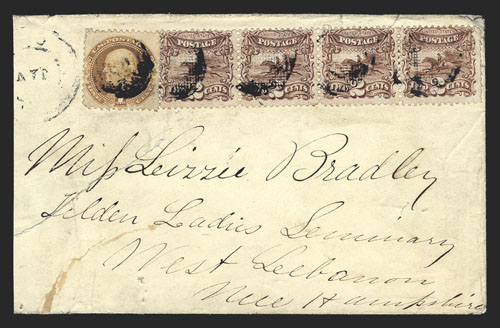 POSTAGE POSTAGE POSTAGE POSTAGE
CENTS CENTS CENTS CENTS
Miss Lizzie Bradley
Tilden Ladies Seminary
West Lebanon
New Hampshire